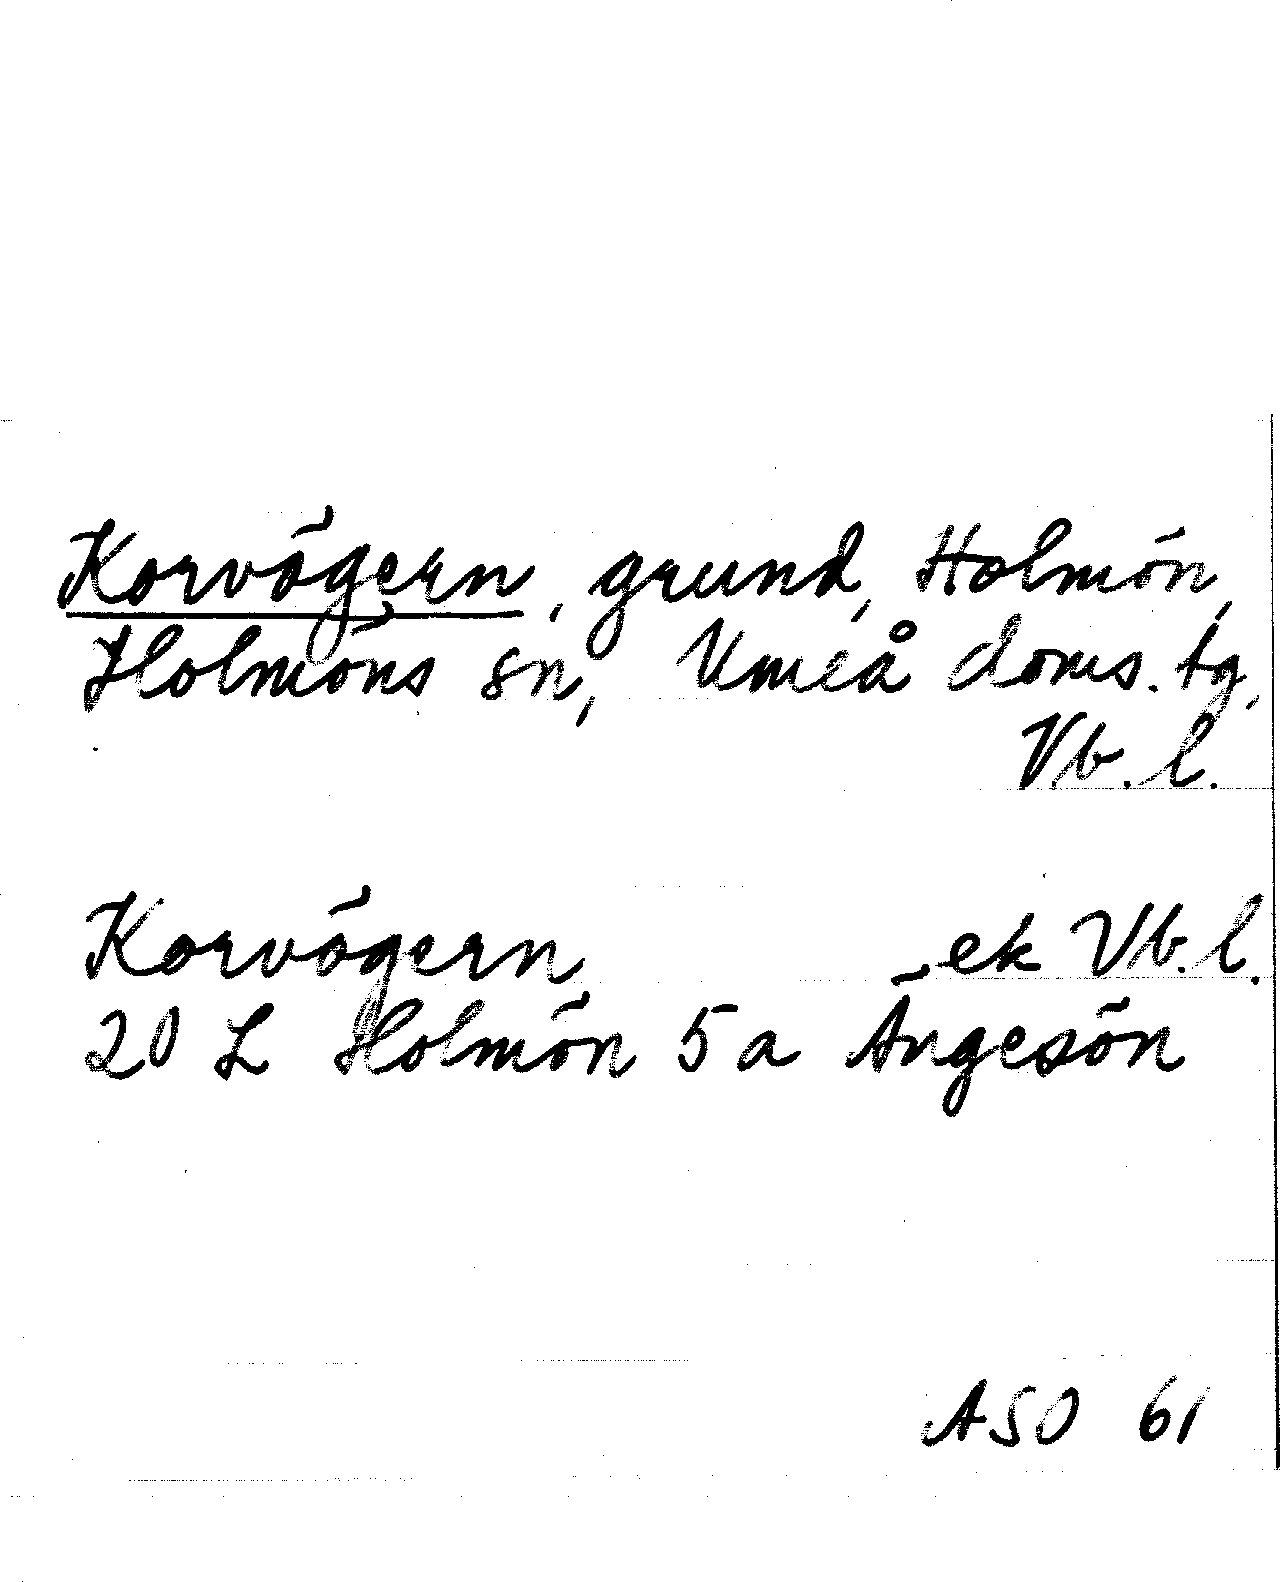 Korvögern, grund, Holmön,
Holmöns sn, Umeå doms. tg,
Vb. l.
Korvögern ek Vb. l.
20 L Holmön 5 a Ängesön
ASO 61